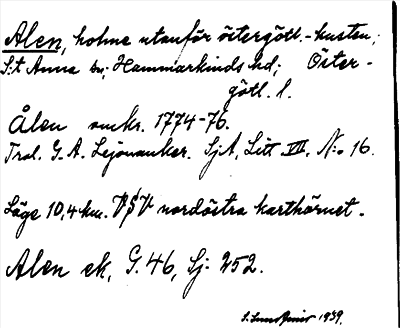 Alen, holme utanför östergötl.-kusten;
S:t Anna sn; Hammarkinds hd; Öster-
götl. l.
Ålen omkr. 1774-76.
Trol. G. A. Lejonanker. SjA, Litt. VII, N:o 16.
Läge 10,4 km. VSV nordöstra karthörnet.
Alen ek, G. 46, Sj. 252.
1939.